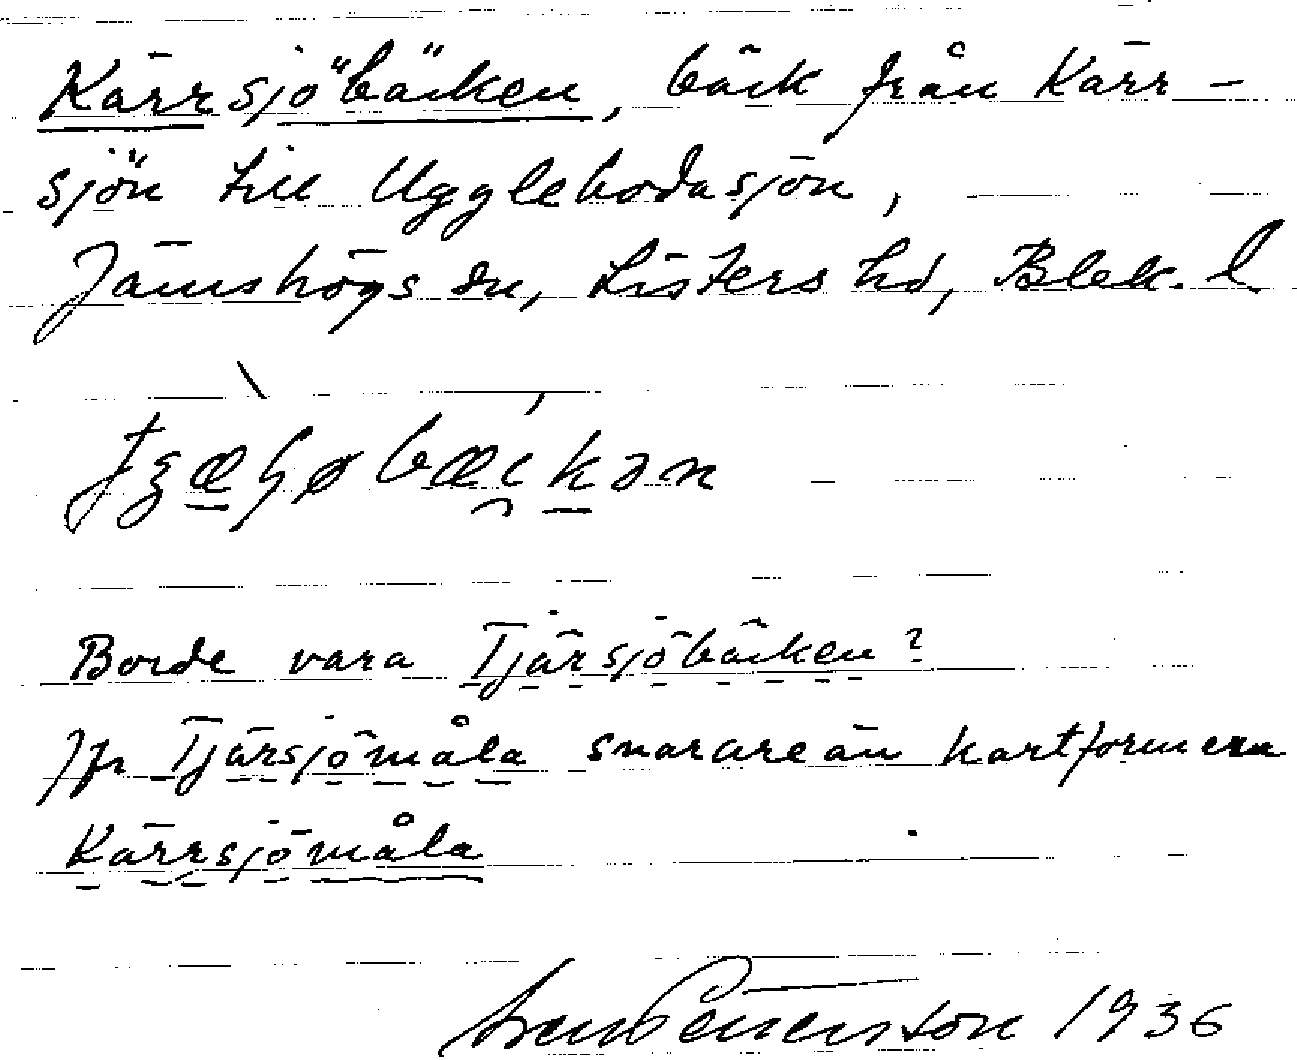 Kärrsjöbäcken, bäck från Kärr-
sjön till Ugglebodasjön,
Jämshögs sn, Listers hd, Blek. l.
Borde vara Tjärsjöbäcken?
Jfr Tjärsjömåla snarare än kartformen
Kärrsjömåla
1936